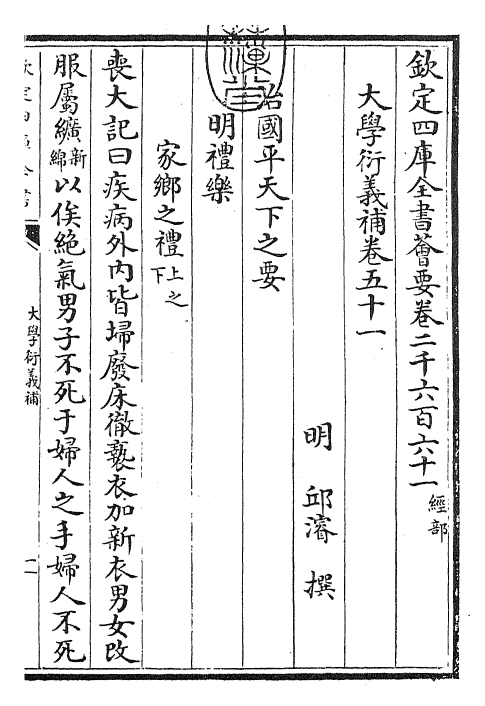 欽定四庫全書薈要卷二千六百六十一 經部
大學衍義補卷五十一
明 邱濬 撰
治國平天下之要
明禮樂
家鄉之禮 上之下
喪大記曰疾病外内皆埽廢床徹褻衣加新衣男女改
服屬纊 新綿 以俟絶氣男子不死于婦人之手婦人不死
大學衍義補
一